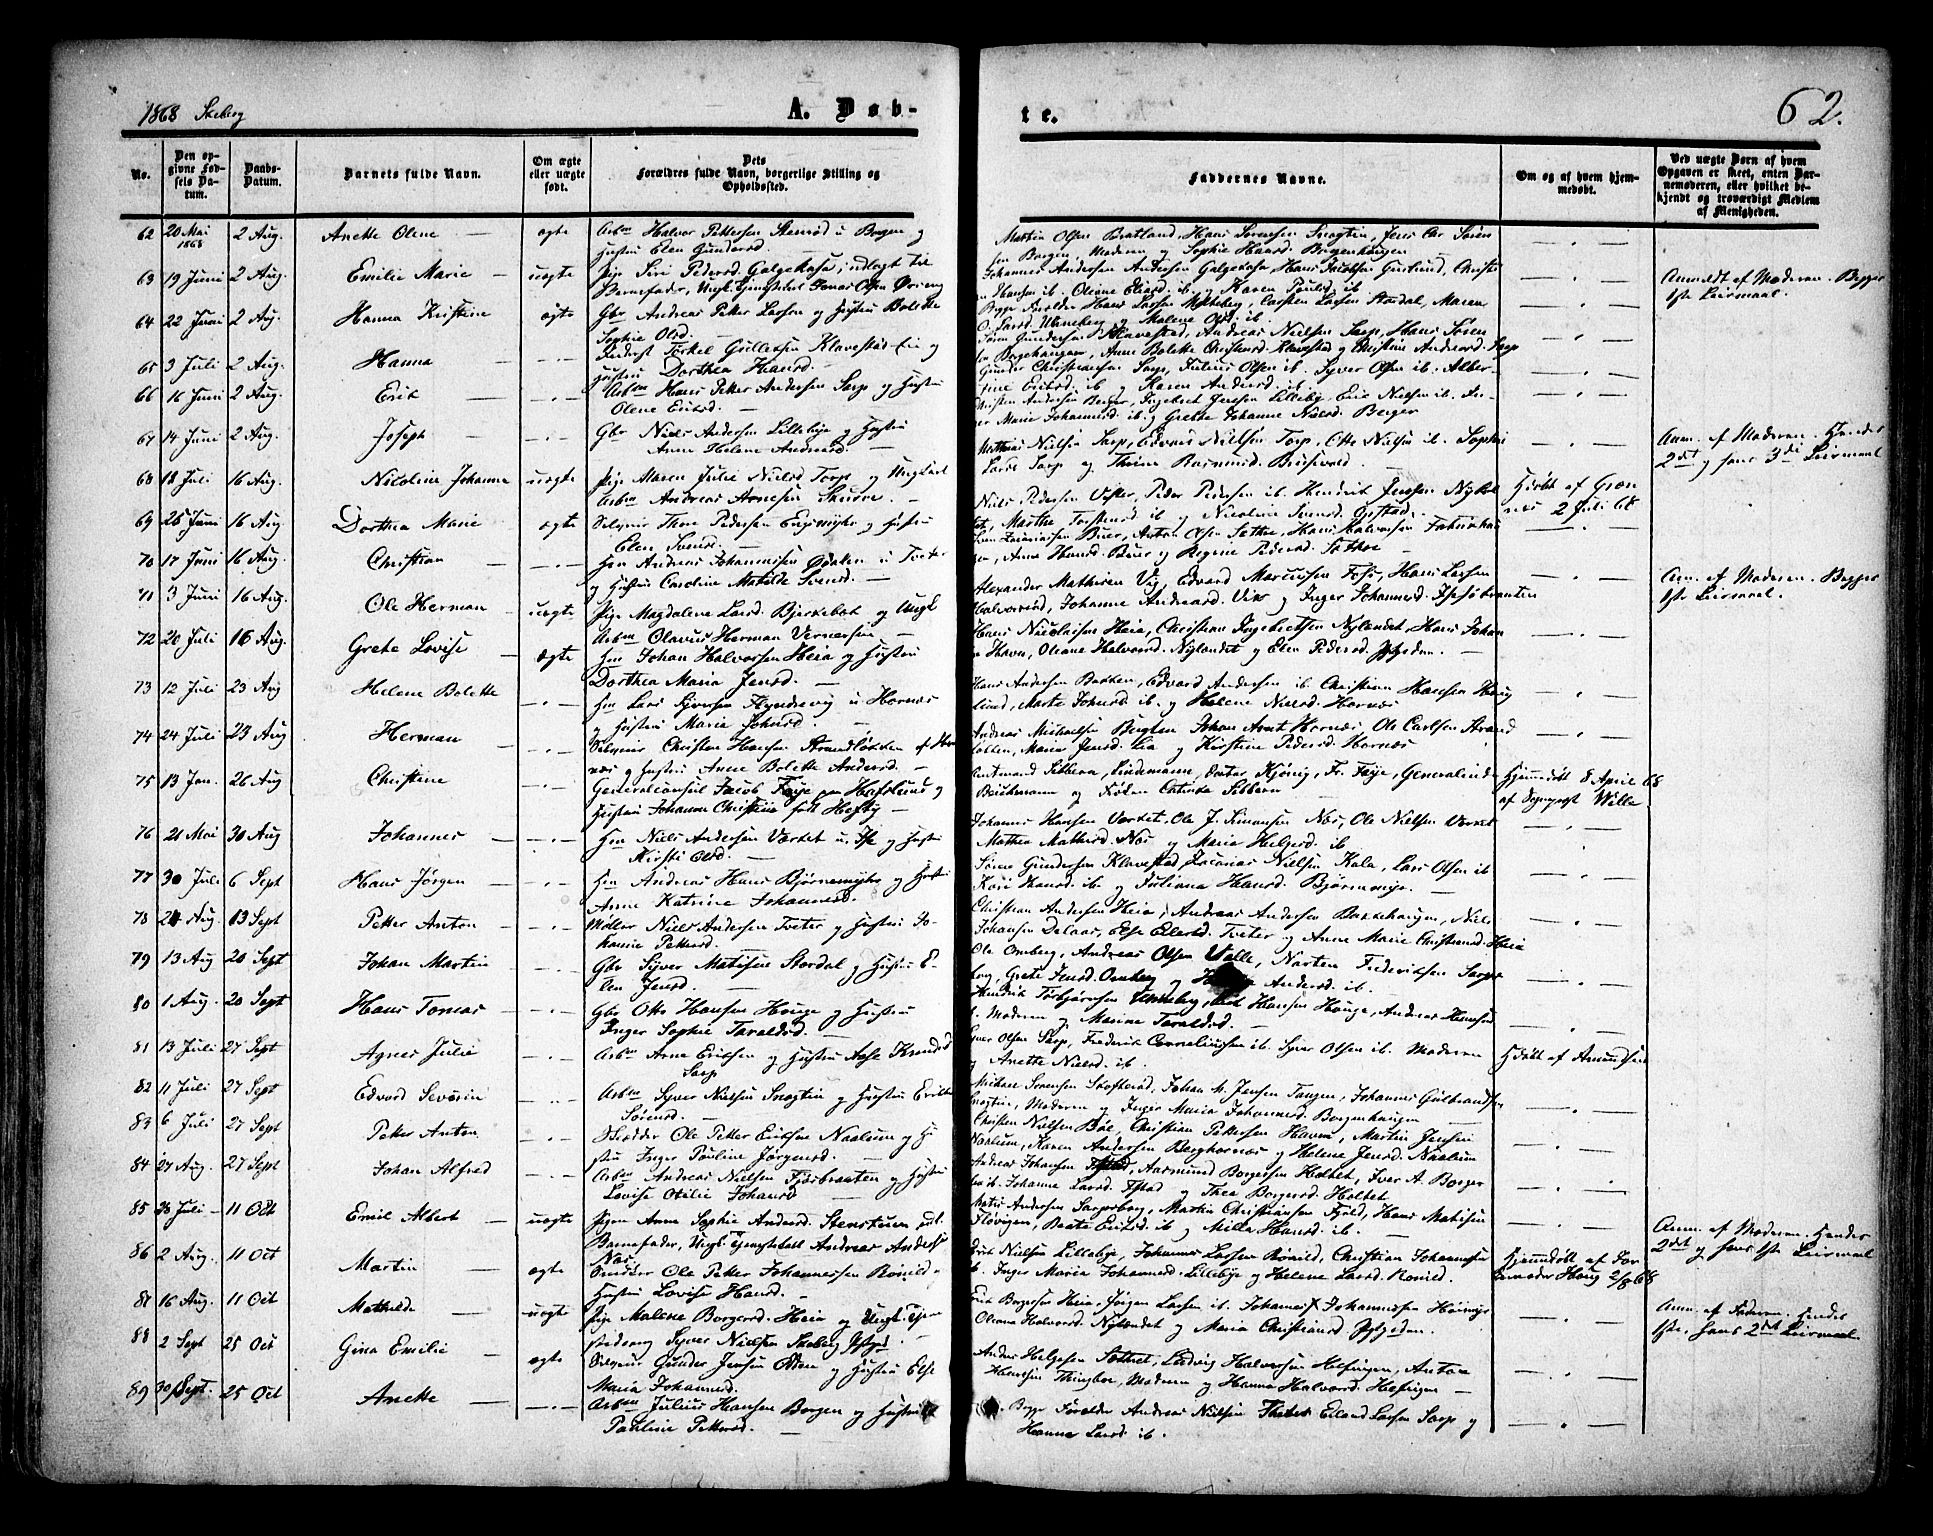 1868 Skeberg
A. Døb-
te.
62.
No.
Den op-
givne Fød-
sels Da-
tum.
Daabs-
Datum.
Barnets fulde Navn.
Om ægte
eller uægte
født.
Dets
Forældres fulde Navn, borgerlige Stilling og
Opholdssted.
Faddernes Navne.
Om og af hvem hjem-
medøbt.
Ved uægte Børn af hvem
Opgaven er skeet, enten Bar-
nemoderen, eller hvilket be-
kjendt og troværdigt Medlem
af Menigheden.
62 20 Mai 1868 2 Aug. Anette Olene ægte Arbm Halvor Pettersen Stensrød u Borgen og
Hustru Elen Gundersd.
Martin Olsen Bratland, Hans Sørensen Snogtin, Jens Chr Søren
sen Borgen, Moderen og Sophie Hansd. Borgenhaugen
63 19 Juni 2 Aug. Emilie Marie uægte Pige Siri Pedersd. Galgekasa, udlagt til
Barnefader, Ungk. Tjenstekal Jonas Olsen
Johannes Andersen Andersen Galgekasa, Hans Jacobsen
Hansen ib. Oliane Eliasd. ib. og Karen Paulsd. ib
Anmeldt af Moderen. Begges
1ste Leiermaal.
64 22 Juni 2 Aug. Hanna Kristine ægte Gbr Andreas Petter Larsen og Hustru Bolette
Sophie Olsd.
Begge Forældre Hans Larsen Carsten Larsen Stordal, Maren
O. Larsd. og Malene Olsd. ib.
65 3 Juli 2 Aug. Hanna Torkel Gullersen Klavestad-Eie og
Hustru Dorthea Hansd.
Søren Gundersen Klavestad, Andreas Nielsen Sarp, Hans Søren
sen Borgehaugen, Anne Bolette Christensd. Klavestad og Christine Andersd. Sarp
66 16 Juni 2 Aug. Erik Arbm Hans Petter Andersen Sarp og Hustru
Olene Eriksd.
Gunder Christiansen Sarp, Julius Olsen ib. Syver Olsen ib. Alber
tine Eriksd. ib og Karen Andersd. ib.
67 14 Juni 2 Aug. Joseph Gbr Niels Andersen Lillebye og Hustru
Anne Helene Andersd.
Christen Andersen Berger, Ingebret Jensen Lilleby Eric Nielsen ib. In-
ger Marie Johannesd. ib. og Grethe Johanne Nielsd. Berger
68 18 Juli 16 Aug. Nicoline Johanne uægte Pige Maren Julie Nielsd Torp og Ungkarl
Arbm Andreas Arnesen
Mathias Nielsen Sarp, Edvard Nielsen Torp, Otto Nielsen ib. Sophie
Larsd. Sarp og Thrine Rasmusd.
Anm. af Moderen. Hendes
2det og hans 3die Leiermaal
69 25 Juni 16 Aug. Dorthea Marie ægte Selveier Thore Pedersen Engemyhr og Hustru
Elen Svensd.
Niels Pedersen Vister, Peder Pedersen ib. Hendrik Jensen
Marthe Torstensd ib og Nicoline Svensd.
Hjdøbt af Grøn
næs 2 Juli 68
70 17 Juni 16 Aug. Christian Hm Andreas Johannesen Ødalen u Tveter
og Hustru Caroline Matilde Svensd.
Anton Olsen Sothe, Hans Halvorsen
Anne Hansd. Buer og Regine Pedersd. Sothe
71 3 Juni 16 Aug. Ole Herman uægte Pige Magdalene Larsd. Bjerkebæk og Ungk
Arbm Olavus Herman Vernersen
Alexander Mathisen Vig, Edvard Marcussen Foss, Hans Larsen
Halvorsrød, Johanne Andreasd. Vik og Inger Johannesd.
Anm. af Moderen. Begges
1ste Leiermaal.
72 20 Juli 16 Aug. Grete Lovise ægte Hm Johan Halvorsen Heia og Hustru
Dorthea Maria Jensd.
Hans Nicolaisen Heia, Christian Ingebretsen Nylandet, Hans Johan
Oliane Halvorsd. Nylandet og Elen Pedersd.
73 12 Juli 23 Aug Helene Bolette Hm Lars Syversen Flyndrevig u Hornæs
og Hustru Marie Johnsd.
Hans Andersen Bakken, Edvard Andersen ib. Christian Hansen Haug
lund, Marte Johnsd. ib. og Helene Nielsd. Hornæs
74 24 Juli 23 Aug Herman Selveier Christen Hansen Strandløkken af Hor
næs og Hustru Anne Bolette Andersd.
Andreas Michaelsen Johan Arnt Hornæs Ole Carlsen Strand
løkken, Maria Jensd. Lia og Kirstine Pedersd. Hornæs
75 13 Jan. 26 Aug Christine Generalconsul Jacob Faye paa Hafslund og
Hustru Johanne Christine født Heftÿ
Amtmand Sibbern, Lindemann, Kjønig, Fr. Faye, Generalinde
Beichmann og Frøken Catinka Sibbern
Hjemmdøbt 8 April 68
af Sognepræst Wille
76 21 Mai 30 Aug Johannes Hm Niels Andersen Værket u. Ise og Hustru
Kirsti Olsd.
Johannes Hansen Værket, Ole J. Simensen Næs, Ole Nielsen Værket
Mathea Mathisd. Næs og Maria Helgesd. ib.
77 30 Juli 6 Sept Hans Jørgen Hm Andreas Hans Bjørnemyhr og Hustru
Anne Katrine Johannesd.
Søren Gundersen Klavestad, Zacarias Nielsen Kala, Lars Olsen ib
Kari Hansd. ib og Juliana Hansd. Bjørnemyr.
78 24 Aug. 13 Sept Petter Anton Møller Niels Andersen Tveter og Hustru Jo-
hanne Pettersd.
Christian Andersen Heia, Andreas Andersen Bakkehaugen, Niels
Johansen Else Eilersd. Tveter og Anne Marie Christiansd. Heia
79 13 Aug 20 Sept Johan Martin Gbr Syver Mathisen Stordal og Hustru E-
len Jensd.
Ole Omberg, Andreas Olsen Valle, Morten Frederiksen Sarps
borg, Grete Jensd. Omberg og Andersd. ib.
80 1 Aug. 20 Sept Hans Tomas Gbr Otto Hansen Houge og Hustru
Inger Sophie Taraldsd.
Hendrik Torbjørnsen Hansen Houge, Andreas Hansen
ib. Moderen og Marine Taraldsd.
81 13 Juli 27 Sept Agnes Julie Arbm Arne Eriksen og Hustru Aase Knudsd
Sarp
Syver Olsen Sarp, Frederik Corneliussen ib. Syver Olsen ib. Moderen
og Anette Nielsd. ib.
Hjdøbt af Amundsen
82 11 Juli 27 Sept Edvard Severin Arbm Syver Nielsen Snogtin og Hustru Erikke
Sørensd.
Michael Sørensen Skofterød, Johan M. Jensen Tangen, Johannes Gulbrandsen
Snogtin, Moderen og Inger Maria Johannesd. Borgenhaugen
83 6 Juli 27 Sept Petter Anton Skrædder Ole Petter Eriksen Naalum og Hu
stru Inger Pauline Jørgensd.
Christen Nielsen Bøe, Christian Pettersen Haven, Martin Jensen
Naalum, Karen Andersen Berghornæs og Helene Jensd. Naalum
84 27 Aug. 27 Sept Johan Alfred Arbm Andreas Nielsen Fjærbraaten og Hustru
Lovise Otilie Johansd
Andreas Johansen Ifstad, Aasmund Borgersen Holtet, Iver A. Borger
sen ib. Johanne Larsd. Ifstad og Thea Borgersd. Holtet
85 28 Juli 11 Oct Emil Albert uægte Pigen Anne Sophie Andersd. Stenstuen udl.
Barnefader, Ungk. Tjenstekall Andreas Anders
Næs
Mathis Andersen Sarpsborg, Martin Christiansen Fjeld, Hans Mathisen
Fløvigen, Beate Eriksd. ib og Milla Hansd. ib.
Anm. af Moderen. Hendes
2det og hans 1ste Leiermaal
86 2 Aug. 11 Oct Martin ægte Snedker Ole Petter Johannessen Rønild
Hustru Lovise Hansd.
Erik Nielsen Lillebye, Johannes Larsen Rønild, Christian Johannesen
ib. Inger Maria Johannesd. Lillebye og Helene Larsd. Rønild.
Hjemmdøbt af Jor
demoder Houg 2/8 68
87 16 Aug. 11 Oct Mathilde uægte Pige Malene Borgersd. Heia og Ungk. Tjene
stedreng Syver Nielsen Skeberg
Erik Borgersen Heia, Jørgen Larsen ib. Johannes Johannessen
Oleana Halvorsd. Nylandet og Maria Christiansd.
Anm. af Faderen. Hendes
1ste, hans 2det Leiermaal.
88 2 Sept 25 Oct Gina Emilie ægte Selveier Gunder Jensen Otten og Hustru Else
Maria Johannesd.
Anders Helgesen Sothet, Ludvig Halvorsen Helsingen, Anton
Hansen Tingbør, Moderen og Hanna Halvorsd. Helsingen
89 30 Sept. 25 Oct Anette Arbm Julius Hansen Borgen og Hustru
Pauline Pettersd.
Begge Forældre Andreas Nielsen Larsen Sarp og
Hanna Larsd ib.